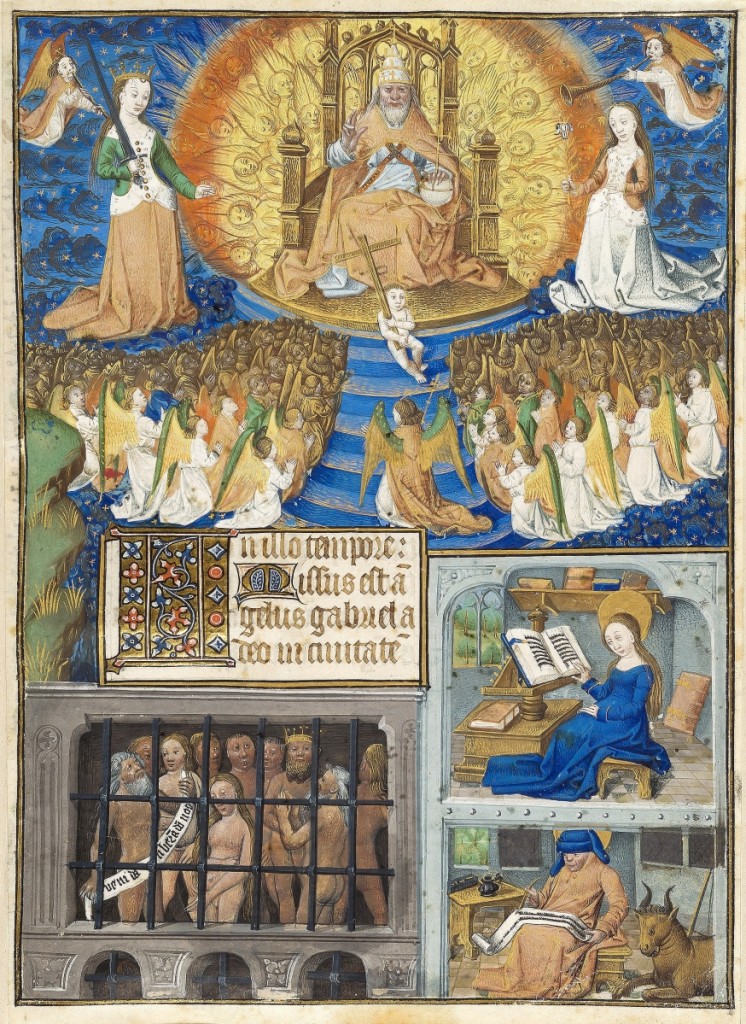 In illo tempore:
Missus est ā
gelus gabriel a
deo in ciuitatē
veni